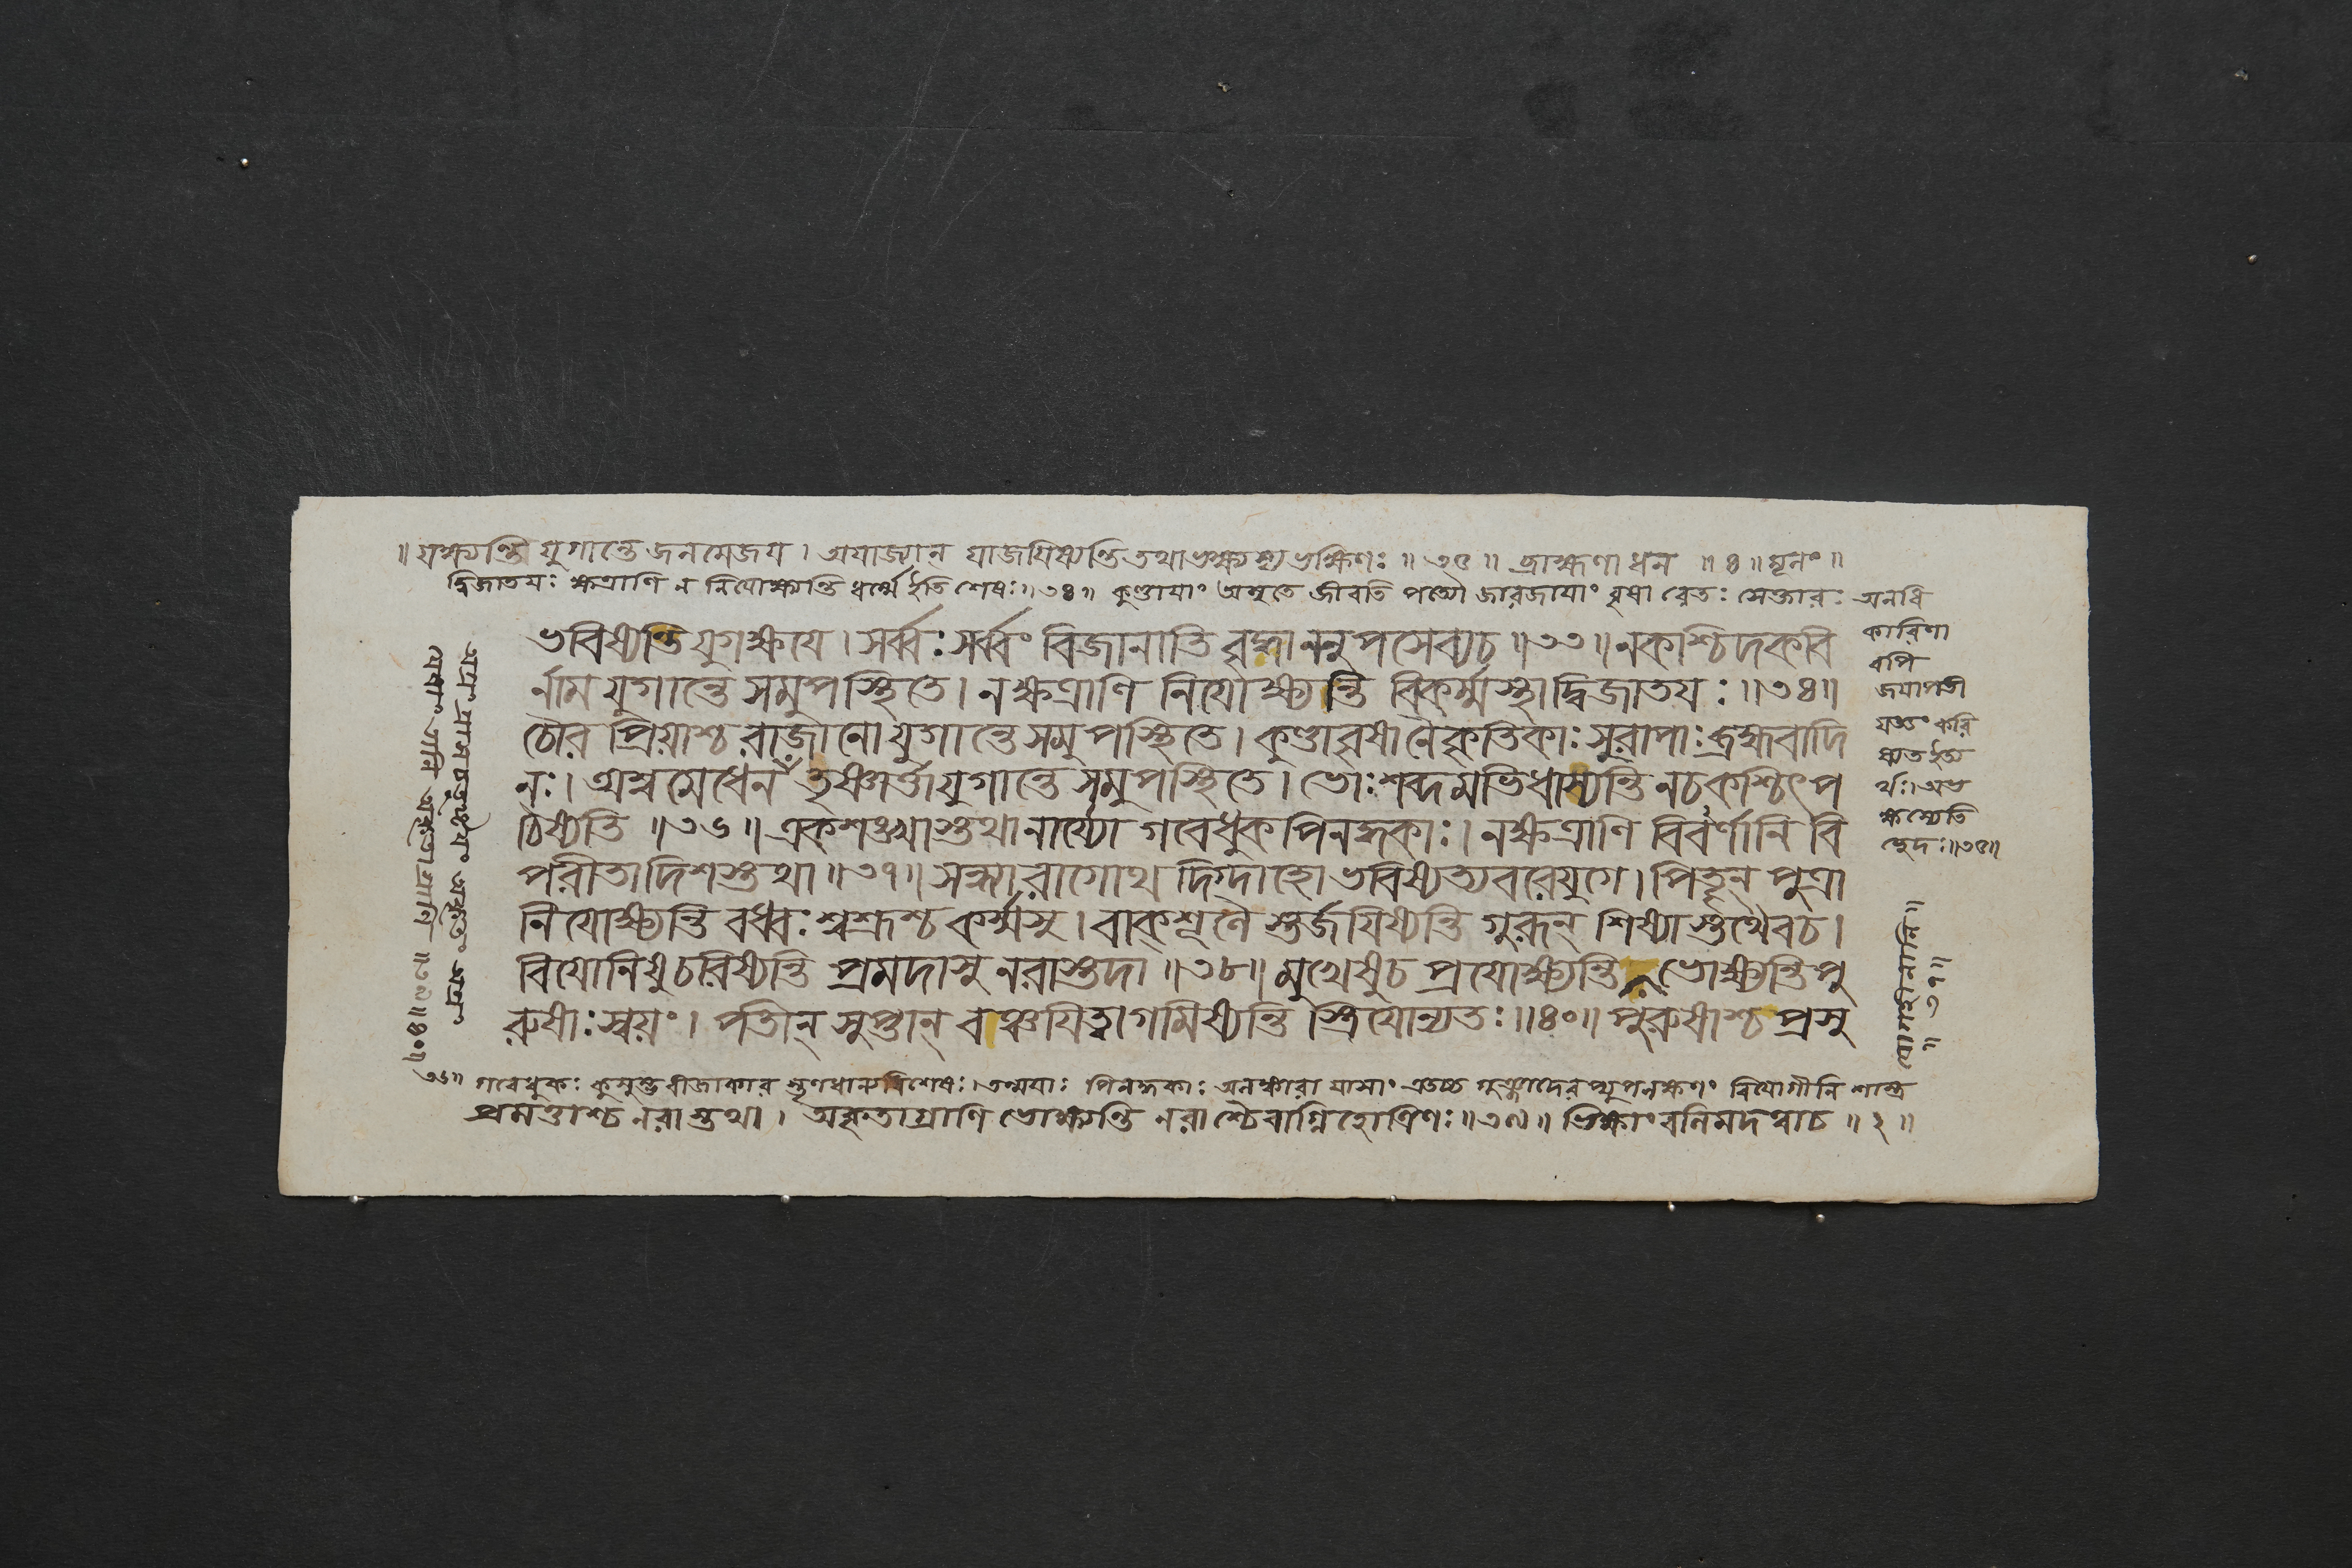 ॥ যক্ষ্যন্তি যুগান্তে জনমেজয়। অযাজ্যান্ যাজয়িষ্যন্তি তথাভক্ষ্যস্য ভক্ষিণঃ ॥ ৩৫ ॥ ব্রাহ্মণা ধন ॥ ৪ ॥ মূলং ॥
দ্বিজাতয়ঃ ক্ষত্রাণি ন নিযোক্ষ্যন্তি ধর্ম্মে ইতি শেষঃ ॥ ৩৪ ॥ কুণ্ডায়াং অমৃতে জীবতি পত্যৌ জারজায়াং বৃষা রেতঃ সেক্তারঃ অনধি
কারিণা
বপি
জয়াপতী
যজ্ঞং করি
ষ্যত ইত্য
র্থঃ। অভ
ক্ষস্যেতি
চ্ছেদঃ ॥ ৩৫ ॥
ভবিষ্যন্তি যুগক্ষয়ে। সর্ব্বঃ সর্ব্বং বিজানাতি বৃদ্ধাননুপসেব্যচ ॥ ৩৩ ॥ নকশ্চিদকবি
র্নাম যুগান্তে সমুপস্থিতে। নক্ষত্রাণি নিযোক্ষ্যন্তি বিকর্ম্মস্থা দ্বিজাতয়ঃ ॥ ৩৪ ॥
চৌর প্রিয়াশ্চ রাজানো যুগান্তে সমুপস্থিতে। কুণ্ডাবৃষানৈকৃতিকাঃ সুরাপাঃ ব্রহ্মবাদি
নঃ। অশ্বমেধেন যক্ষ্যন্তে যুগান্তে সমুপস্থিতে। ভোঃশব্দমভিধাস্যন্তি নচকশ্চিৎ প
ঠিষ্যতি ॥ ৩৬ ॥ একশঙ্খাস্তথা নার্য্যো গবেধুকপিনদ্ধকাঃ। নক্ষত্রাণি বিবর্ণানি বি
পরীতাদিশস্তথা ॥ ৩৭ ॥ সন্ধ্যারাগোথ দিগ্দাহো ভবিষ্যত্যবরেযুগে। পিতৄন্ পুত্রা
নিযোক্ষ্যন্তি বধ্বঃ শ্বশ্রূশ্চ কর্ম্মসু। বাক্শূলৈ স্তর্জয়িষ্যন্তি গুরূন্ শিষ্যাস্তথৈবচ।
বিযোনিষুচরিষ্যন্তি প্রমদাসু নরাস্তদা ॥ ৩৮ ॥ মুখেষুচ প্রযোক্ষ্যন্তি ভোক্ষ্যন্তি পু
রুষাঃ স্বয়ং। পতীন্ সুপ্তান্ বঞ্চয়িত্বা গমিষ্যন্তি স্ত্রিয়োন্যতঃ ॥ ৪০ ॥ পুরুষাশ্চ প্রসু
৩৬ ॥ গবেধুকঃ কুসুম্ভবীজাকার স্তৃণধান্যবিশেষঃ। তন্ময়াঃ পিনদ্ধকাঃ অলঙ্কারা যাসাং এতচ্চ গুঞ্জাদেরপ্যুপলক্ষণং বিযোগীনি শাস্ত্র
প্রমত্তাশ্চ নরাস্তথা। অকৃতাগ্রাণি ভোক্ষ্যন্তি নরাশ্চৈবাগ্নিহোত্রিণঃ ॥ ৩৯ ॥ ভিক্ষাং বলিমদত্বাচ ॥ ২ ॥